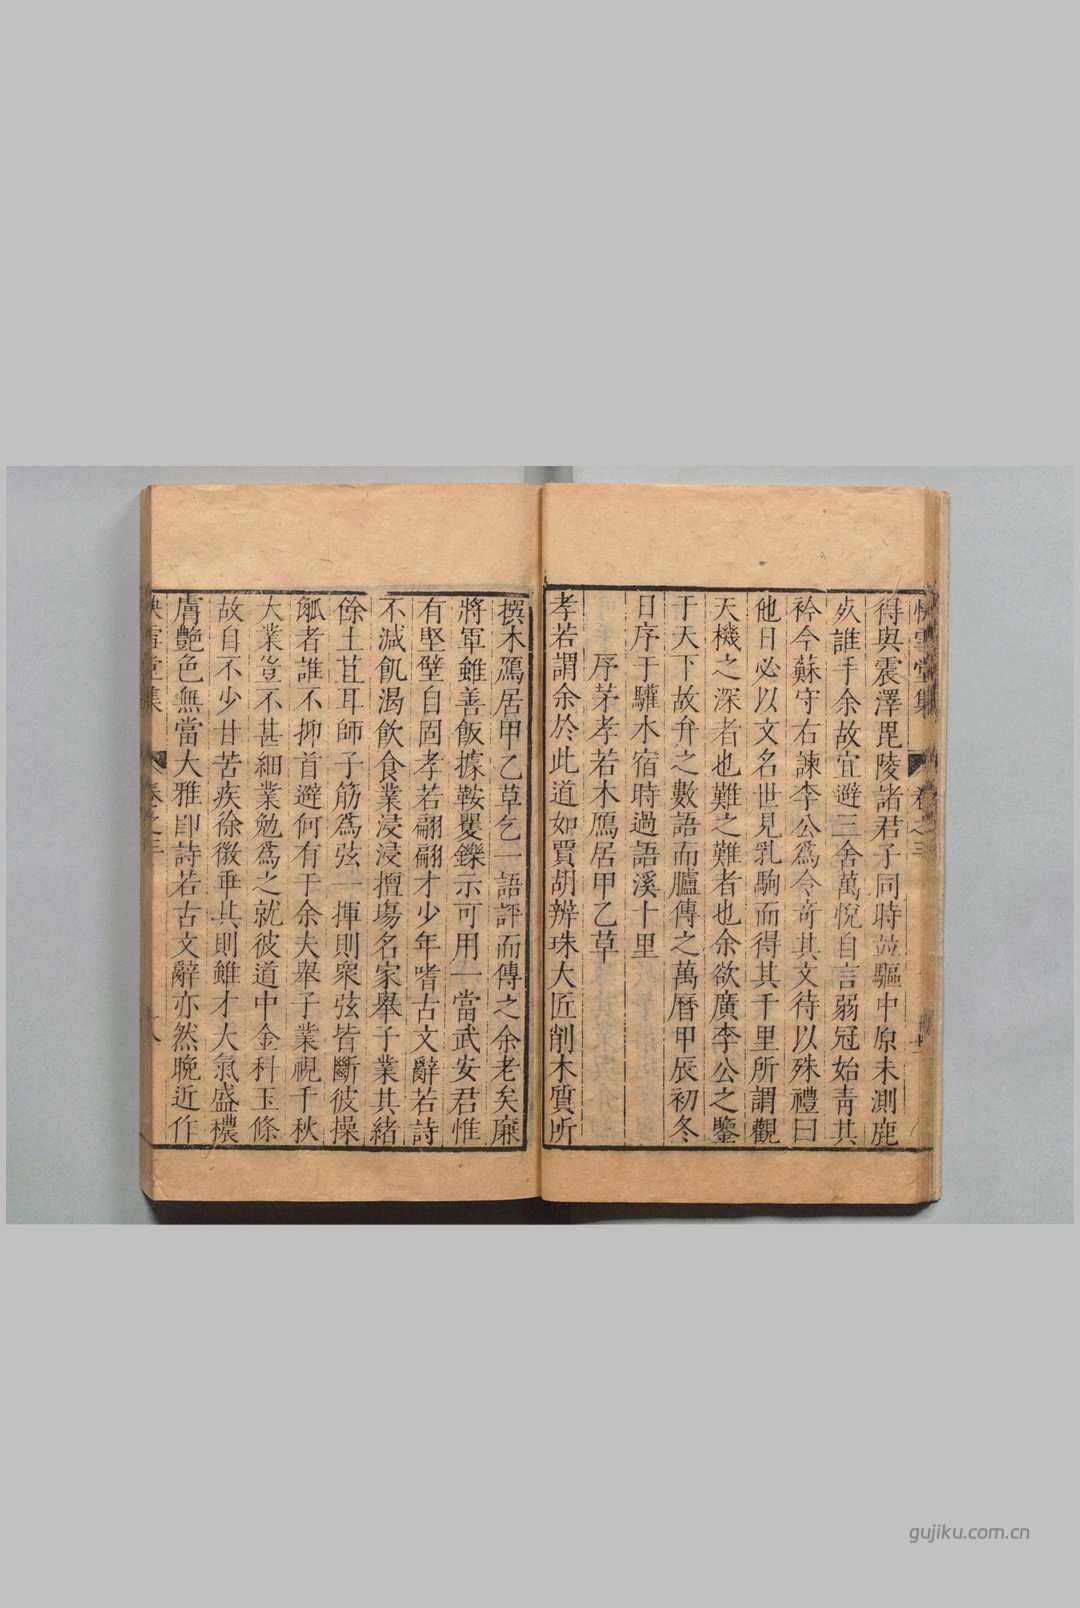 快雪堂集 卷之三
得與震澤毘陵諸君子同時並驅中原未測鹿
死誰手余故宜避三舍萬悅自言弱冠始青其
衿今蘇守右諫李公爲令奇其文待以殊禮曰
他日必以文名世見乳駒而得其千里所謂觀
天機之深者也難之難者也余欲廣李公之鑒
于天下故弁之數語而臚傳之萬曆甲辰初冬
日序于驩木宿時過語溪十里
序茅孝若木鴈居甲乙草
孝若謂余於此道如賈胡辨珠大匠削木質所
撰木鴈居甲乙草乞一語評而傳之余老矣廉
將軍雖善飯據鞍矍鑠示可用一當武安君惟
有堅壁自固孝若翩翩才少年嗜古文辭若詩
不減飢渴飲食業浸浸擅場名家舉子業其緒
餘土苴耳師子筋爲弦一揮則衆弦皆斷彼操
觚者誰不抑首避何有于余夫舉子業視千秋
大業豈不甚細業勉爲之就彼道中金科玉條
故自不少甘苦疾徐徵垂其則雖才大氣盛穠
膚艷色無當大雅卽詩若古文辭亦然晚近作
快雪堂集 卷之三 十八
gujiku.com.cn